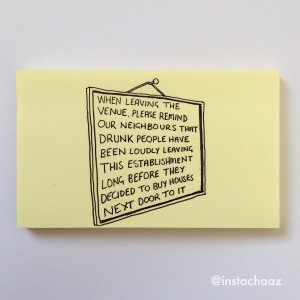 WHEN LEAVING THE
VENUE, PLEASE REMIND
OUR NEIGHBOURS THAT
DRUNK PEOPLE HAVE
BEEN LOUDLY LEAVING
THIS ESTABLISHMENT
LONG BEFORE THEY
DECIDED TO BUY HOUSES
NEXT DOOR TO IT
@instachaaz